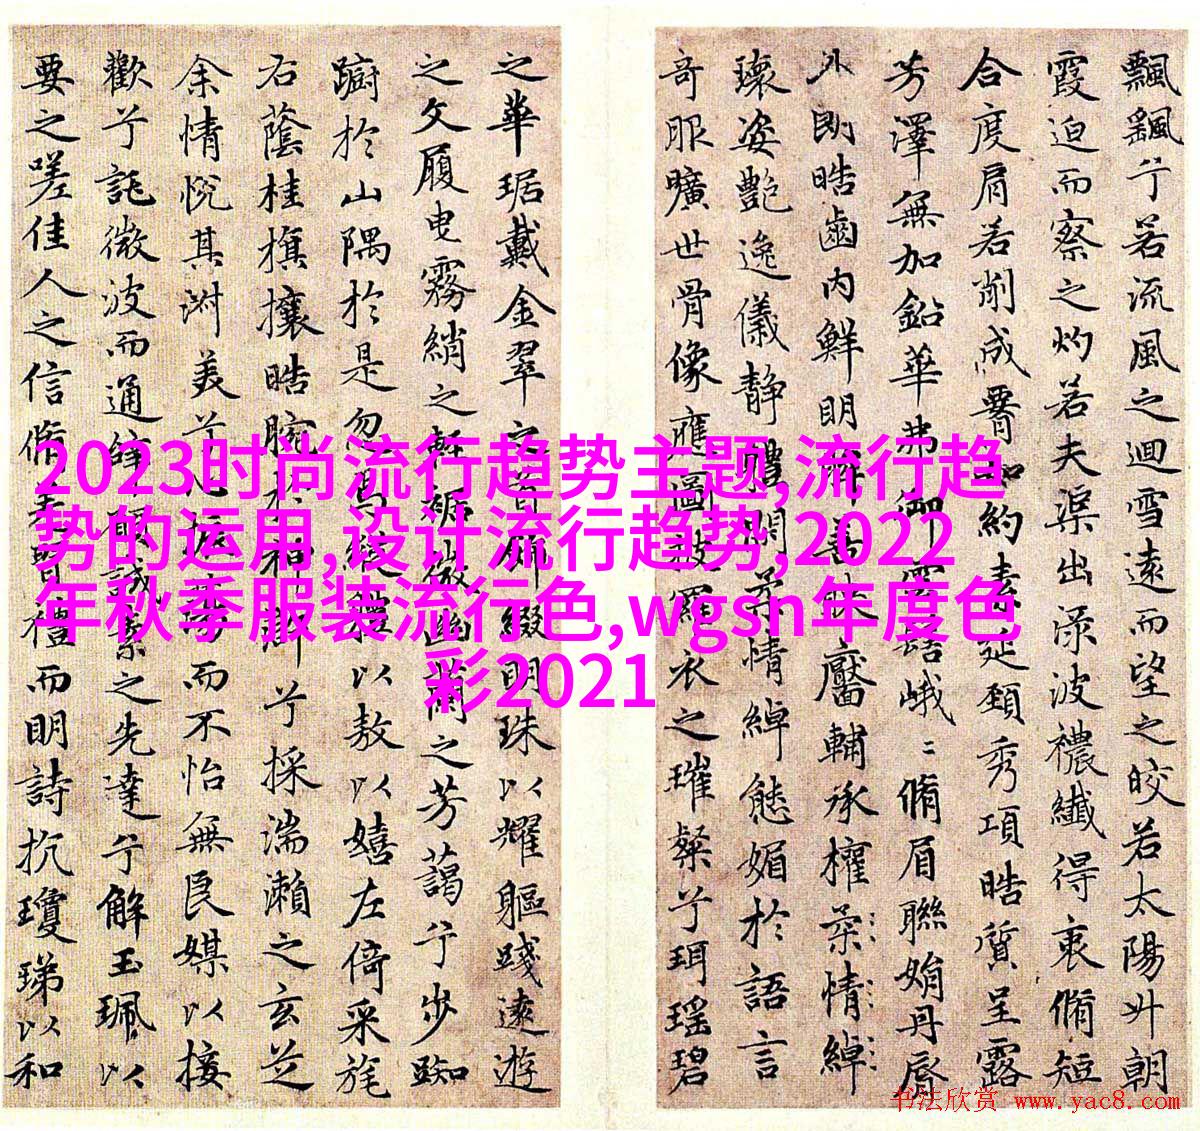 飄颻兮若流風之迴雪遠而望之皎若太陽升朝
霞迫而察之灼若夫渠出渌波襛纖得衷脩短
合度肩若削成䙅如約素延頸秀項皓質呈露
芳澤無加鉛華弗御雲髻峨〻脩眉聯娟丹脣
外朗皓齒內鮮明眸善睞靨輔承權柔情綽
瓌姿艷逸儀靜體閑柔情綽態媚於語言
奇服曠世骨像應圖披羅衣之璀粲兮珥瑤碧
之華琚戴金翠之首飾綴明珠以耀軀踐遠遊
之文履曳霧綃之輕裾微幽蘭之芳藹兮步踟
躕於山隅於是忽焉縱體以敖以嬉左倚采旄
右蔭桂旗攘皓腕於神滸兮採湍瀨之玄芝
余情悅其淑美兮心振蕩而不怡無良媒以接
歡兮託微波而通辭願誠素之先達兮解玉珮以
要之嗟佳人之信脩羌習禮而明詩抗瓊珶以和
2023时尚流行趋势主题,流行趋
势的运用,设计流行趋势,2022
年秋季服装流行色,wgsn年度色
彩2021
书法欣赏 www.yac8.com